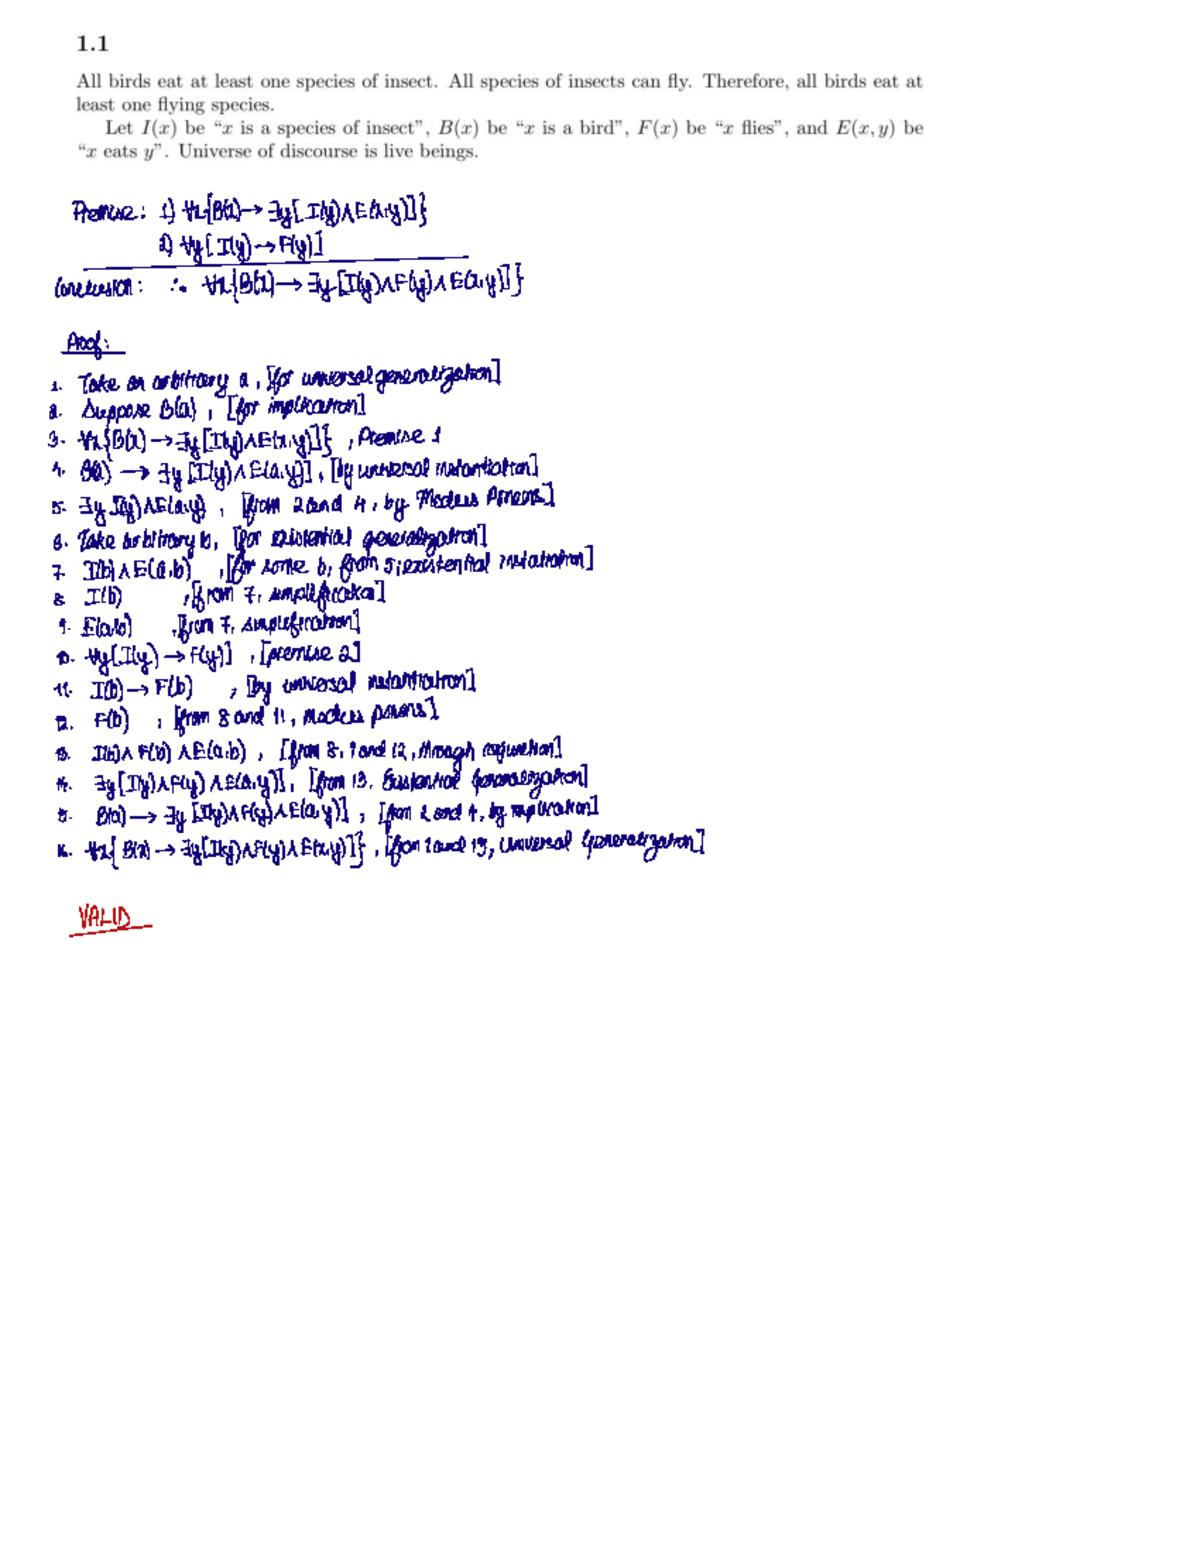 1.1
All birds eat at least one species of insect. All species of insects can fly. Therefore, all birds eat at
least one flying species.
Let I(x) be “x is a species of insect”, B(x) be “x is a bird”, F(x) be “x flies”, and E(x, y) be
“x eats y”. Universe of discourse is live beings.
Premise: 1) ∀x{B(x)→∃y[I(y)∧E(x,y)]}
2) ∀y[I(y)→F(y)]
Conclusion: ∴ ∀x{B(x)→∃y[I(y)∧F(y)∧E(x,y)]}
Proof:
1. Take an arbitrary a, [for universal generalization]
2. Suppose B(a), [for implication]
3. ∀x{B(x)→∃y[I(y)∧E(x,y)]}, Premise 1
4. B(a)→∃y[I(y)∧E(a,y)], [by universal instantiation]
5. ∃y I(y)∧E(a,y), [from 2 and 4, by Modus Ponens]
6. Take arbitrary b, [for existential generalization]
7. I(b)∧E(a,b), [for some b, from 5, existential instantiation]
8. I(b), [from 7, simplification]
9. E(a,b), [from 7, simplification]
10. ∀y[I(y)→F(y)], [premise 2]
11. I(b)→F(b), [by universal instantiation]
12. F(b), [from 8 and 11, modus ponens]
13. I(b)∧F(b)∧E(a,b), [from 8, 9 and 12, through conjunction]
14. ∃y[I(y)∧F(y)∧E(a,y)], [from 13, Existential Generalization]
15. B(a)→∃y[I(y)∧F(y)∧E(a,y)], [from 2 and 4, by implication]
16. ∀x{B(x)→∃y[I(y)∧F(y)∧E(x,y)]}, [from 1 and 15, Universal Generalization]
VALID